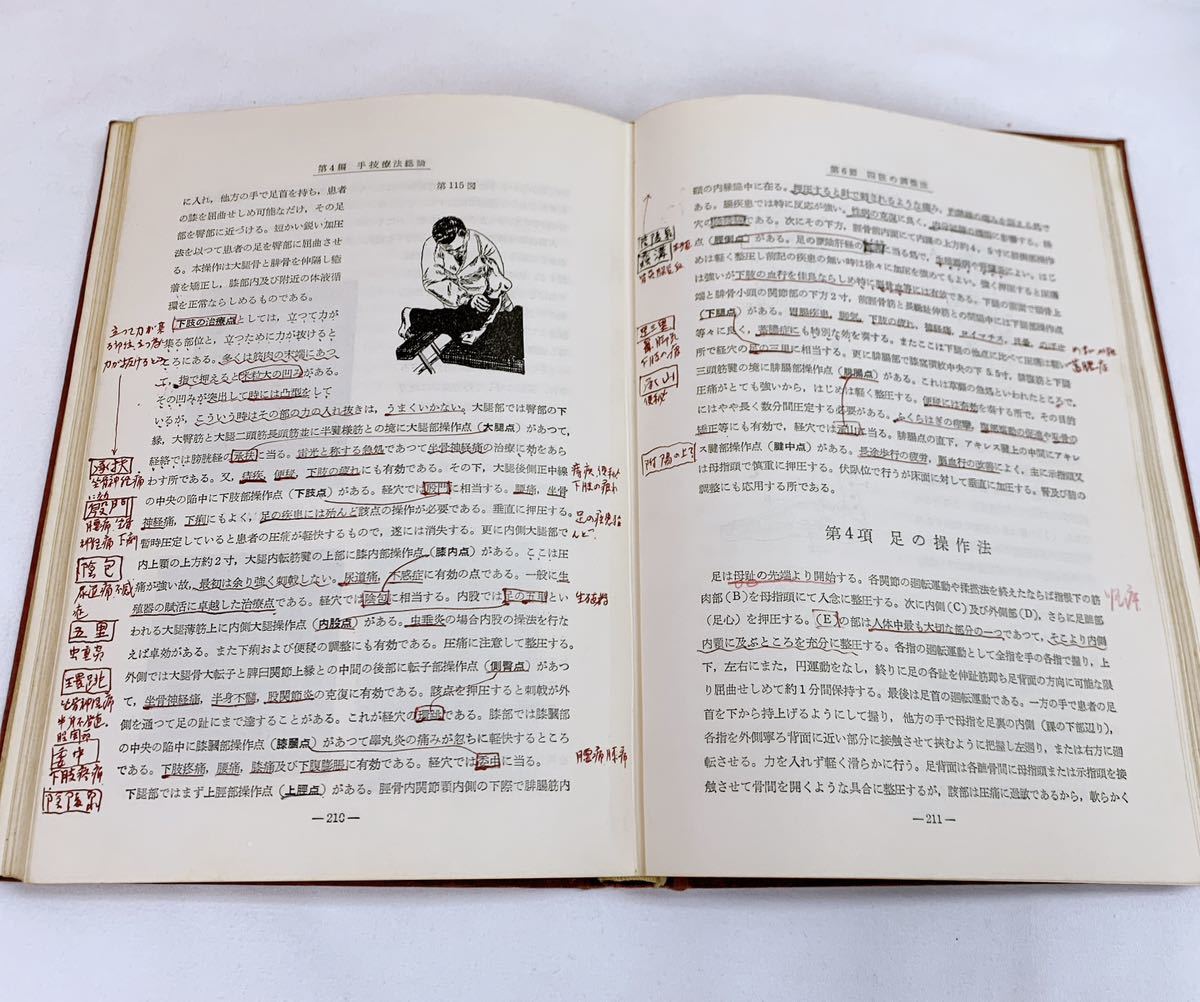 第4編 手技療法総論
に入れ，他方の手で足首を持ち，患者
の膝を屈曲せしめ可能なだけ，その足
部を臀部に近づける。短かい鋭い加圧
法を以つて患者の足を臀部に屈曲させ
る。本操作は大腿骨と腓骨を伸隔し癒
着を矯正し，膝部内及び附近の体液循
環を正常ならしめるものである。
第115図
下肢の治療点としては，立つて力が
集る部位と，立つために力が抜けると
ころにある。多くは筋肉の末端にあつ
て，指で押えると米粒大の凹みがある。
その凹みが突出して時には凸型をして
いるが，こういう時はその部の力の入れ抜きは，うまくいかない。大腿部では臀部の下
縁，大臀筋と大腿二頭筋長頭筋並に半腱様筋との境に大腿部操作点（大腿点）があつて，
経絡では膀胱経の承扶に当る。雷光と称する急処であつて坐骨神経痛の治療に効をあら
わす所である。又，痔疾，便秘，下肢の疲れにも有効である。その下，大腿後側正中線
の中央の陥中に下肢部操作点（下肢点）がある。経穴では殷門に相当する。腰痛，坐骨
神経痛，下痢にもよく，足の疾患には殆んど該点の操作が必要である。垂直に押圧する。
暫時圧定していると患者の圧痛が軽快するもので，遂には消失する。更に内側大腿部で
内上顆の上方約2寸，大腿内転筋腱の上部に膝内部操作点（膝内点）がある。ここは圧
痛が強い故，最初は余り強く刺戟しない。尿道痛，不感症に有効の点である。一般に生
殖器の賦活に卓越した治療点である。経穴では陰包に相当する。内股では足の五里とい
われる大腿薄筋上に内側大腿部操作点（内股点）がある。虫垂炎の場合内股の操法を行な
えば卓効がある。また下痢および便秘の調整にも有効である。圧痛に注意して整圧する。
外側では大腿骨大転子と脾臼関節上縁との中間の後部に転子部操作点（側臀点）があつ
て，坐骨神経痛，半身下髄，股関節炎の克復に有効である。該点を押圧すると刺戟が外
側を通つて足の趾にまで達することがある。これが経穴の環跳である。膝部では膝膕部
の中央の陥中に膝膕部操作点（膝膕点）があつて睾丸炎の痛みが忽ちに軽快するところ
である。下肢疼痛，腰痛，膝痛及び下腹膨脹に有効である。経穴では委中に当る。
下腿部ではまず上脛部操作点（上脛点）がある。脛骨内関節顆内側の下際で腓腸筋内
—210—
立つて力が集
る部位立つ為
力が抜けるところ
承扶
坐骨神経痛
殷門
腰痛 坐骨
神経痛 下痢
陰包
尿道痛 不感
症
五里
虫垂炎
環跳
坐骨神経痛
半身不髄
股関節
委中
下肢疼痛
陰陵泉
痔疾 便秘
下肢の疲れ
足の疾患殆
んど
生殖器
腰痛 膝痛
第6節 四肢の調整法
顆の内縁陥中に在る。押圧すると針で刺されるような痛み，
ある。腸疾患では特に反応が強い。性病の克復に良く，
穴の陰陵泉である。次にその下方，脛骨前内面にて内踝の上方約4，5寸に脛側部操作
点（脛側点）がある。足の厥陰肝経の蠡溝に当る処で，
めは軽く整圧し前記の疾患の無い時は徐々に加圧を強めてもよい。強く押圧すると圧痛
は強いが下肢の血行を佳良ならしめ
端と腓骨小頭の関節部の下方2寸，前脛骨筋と長趾総伸筋との間陥中には下腿部操作点
（下腿点）がある。胃腸疾患，
等々に良く，蓄膿症にも特別な効を奏する。またここは下腿の他点に比べて圧痛
所で経穴の足の三里に相当する。更に腓腸部で膝窩横紋中央の下8.5寸，
三頭筋腱の境に腓腸部操作点（腓腸点）がある。これは草靡の急処といわれたところで，
圧痛がとても強いから，はじめは軽く整圧する。便秘には有効を奏する所で，その目的
にはやや長く数分間圧定する必要がある。ふくらはぎの痙攣，
矯正等にも有効で，経穴では承山に当る。腓腸点の直下，アキレス腱上の中間にアキレ
ス腱部操作点（腱中点）がある。長途歩行の疲労，脳血行の改善によく，主に示指頭又
は母指頭で慎重に押圧する。伏臥位で行うが床面に対して垂直に加圧する。臀及び肋の
調整にも応用する所である。
第4項 足の操作法
足は母趾の先端より開始する。各関節の廻転運動や揉撚法を終えたならば指腹下の筋
肉部（B）を母指頭にて入念に整圧する。次に内側（C）及び外側部（D），さらに足蹠部
（足心）を押圧する。（E）の部は人体中最も大切な部分の一つであつて，そこより内側
内顆に及ぶところを充分に整圧する。各指の廻転運動として全指を手の各指で握り，上
下，左右にまた，円運動をなし，終りに足の各趾を伸趾筋即ち足背面の方向に可能な限
り屈曲せしめて約1分間保持する。最後は足首の廻転運動である。一方の手で患者の足
首を下から持上げるようにして握り，他方の手で母指を足裏の内側（踝の下部辺り），
各指を外側寧ろ背面に近い部分に接触させて挟むように把握し左廻り，または右方に廻
転させる。力を入れず軽く滑らかに行う。足背面は各蹠骨間に母指頭または示指頭を接
触させて骨間を開くような具合に整圧するが，該部は圧痛に過敏であるから，軟らかく
—211—
陰陵泉
蠡溝
足三里
承山
便秘
附陽の上
蓄膿症